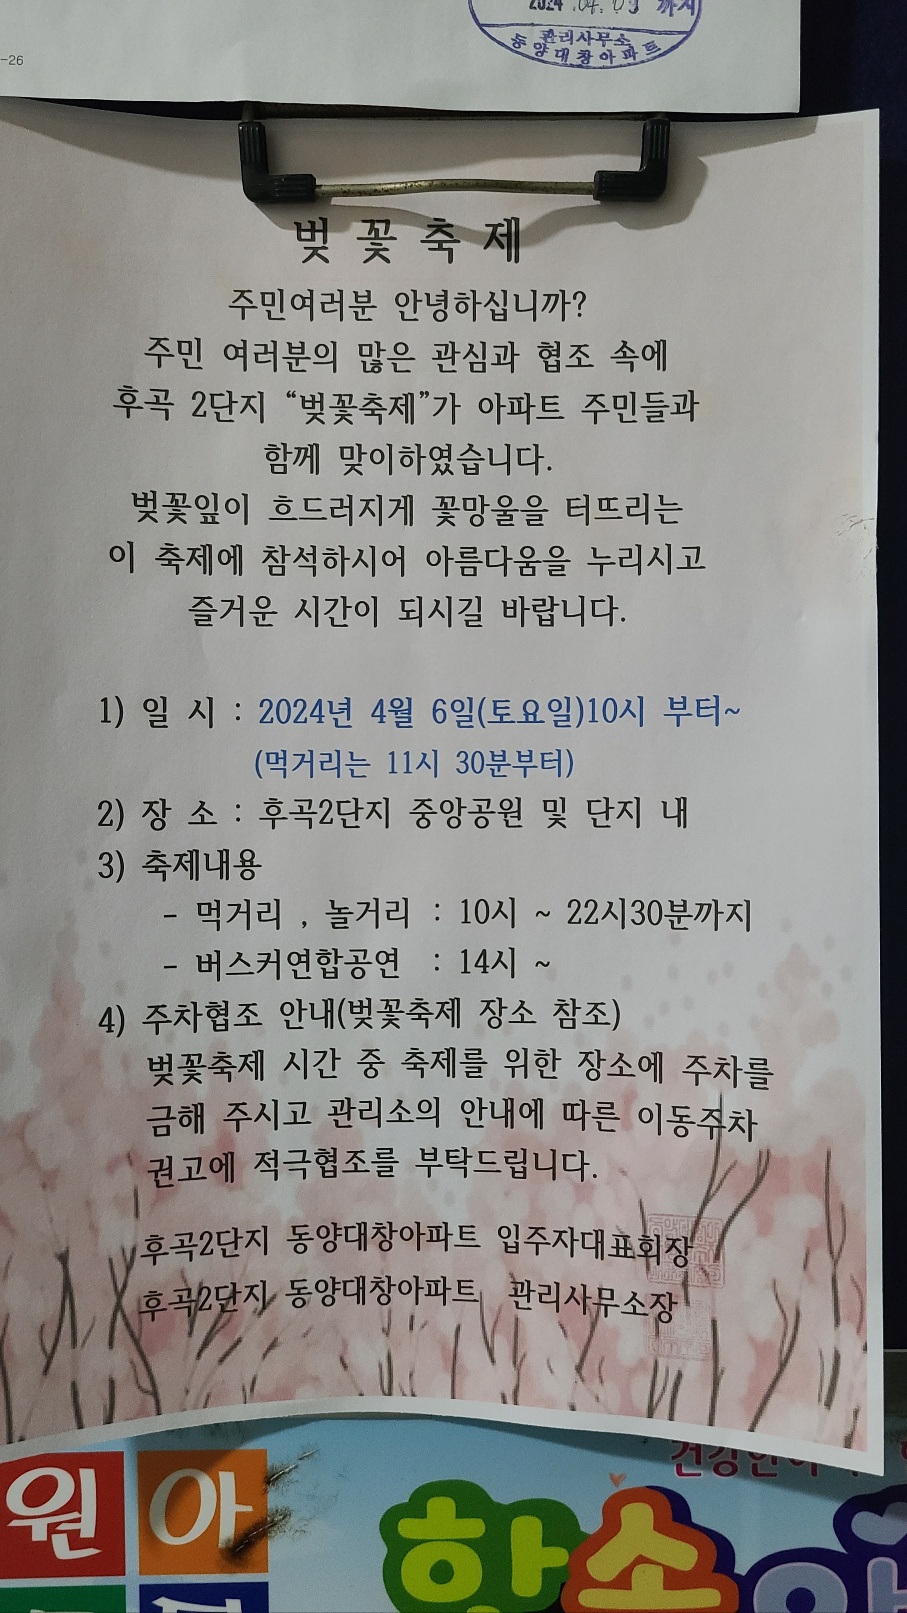 -26
2024 .04. 까지
관리사무소
동양대창아파트
벚꽃축제
주민여러분 안녕하십니까?
주민 여러분의 많은 관심과 협조 속에
후곡 2단지 “벚꽃축제”가 아파트 주민들과
함께 맞이하였습니다.
벚꽃잎이 흐드러지게 꽃망울을 터뜨리는
이 축제에 참석하시어 아름다움을 누리시고
즐거운 시간이 되시길 바랍니다.
1) 일 시 : 2024년 4월 6일(토요일)10시 부터~
(먹거리는 11시 30분부터)
2) 장 소 : 후곡2단지 중앙공원 및 단지 내
3) 축제내용
- 먹거리 , 놀거리 : 10시 ~ 22시30분까지
- 버스커연합공연 : 14시 ~
4) 주차협조 안내(벚꽃축제 장소 참조)
벚꽃축제 시간 중 축제를 위한 장소에 주차를
금해 주시고 관리소의 안내에 따른 이동주차
권고에 적극협조를 부탁드립니다.
후곡2단지 동양대창아파트 입주자대표회장
후곡2단지 동양대창아파트 관리사무소장
원 아
함소아